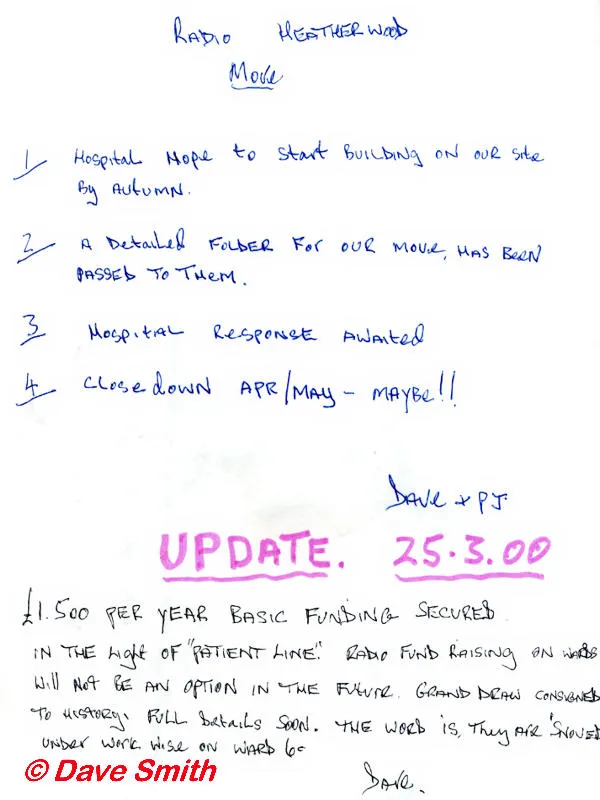 RADIO HEATHERWOOD
Move
1 Hospital Hope to Start BUILDING ON OUR Site
By AUTUMN.
2 A Detailed FOLDER FOR OUR MOVE, HAS BEEN
PASSED TO THEM.
3 HOSPITAL RESPONSE AWAITED
4 CLOSEDOWN APR/MAY - MAYBE!!
DAVE + PJ.
UPDATE. 25.3.00
£1.500 PER YEAR BASIC FUNDING SECURED
IN THE Light OF "PATIENT LINE." RADIO FUND RAISING ON WARDS
Will NOT BE AN OPTION IN THE FUTURE. GRAND DRAW CONSIGNED
TO HISTORY. FULL Details SOON. THE WORD IS, They ARE
UNDER WORK WISE ON WARD 6
Dave.
© Dave Smith